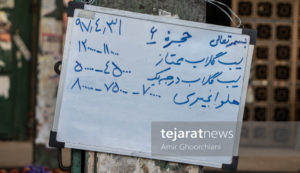 بسمه تعالی حجره ۶ ۹۷,۴,۳۱
سیب گلاب ممتاز ۱۱۰۰۰-۱۲۰۰۰
سیب گلاب درجه یک ۴۵۰۰-۵۰۰۰
هلو انجیری ۷۰۰۰-۷۵۰۰-۸۰۰۰
tejaratnews
Amir Ghoorchiani